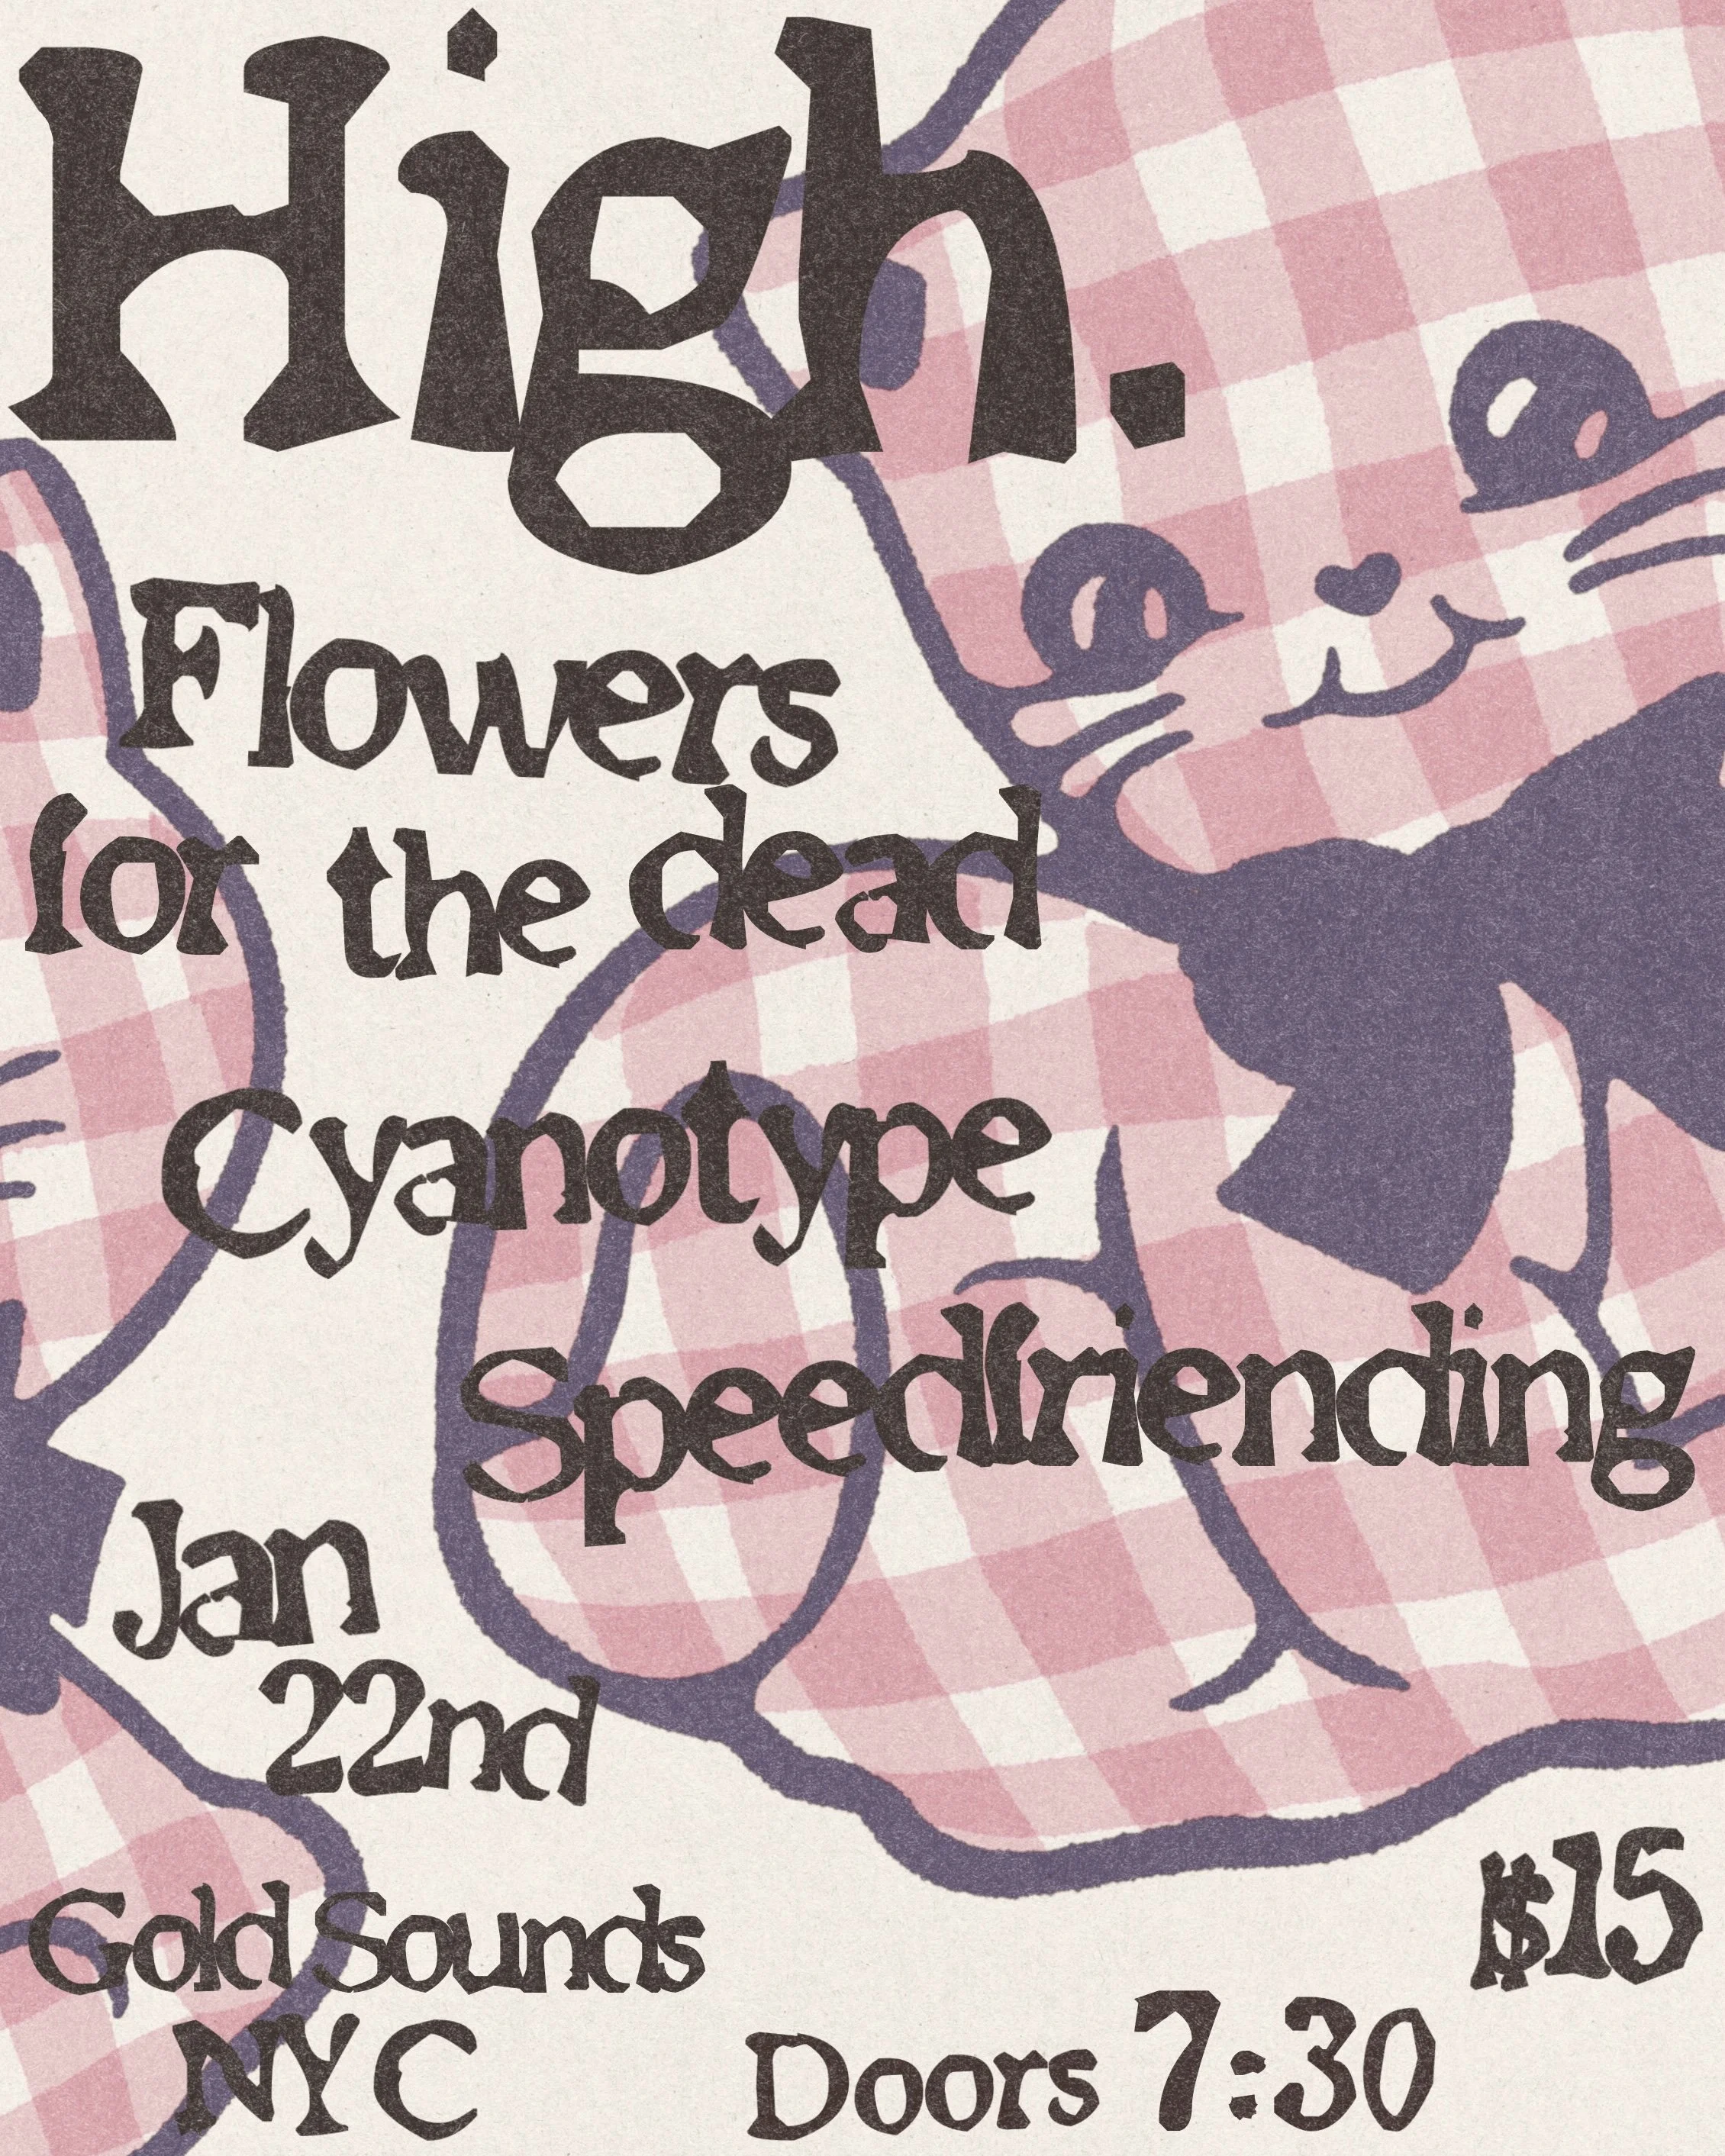 High.
Flowers
for the dead
Cyanotype
Speedfriending
Jan
22nd
$15
Gold Sounds
NYC
Doors 7:30